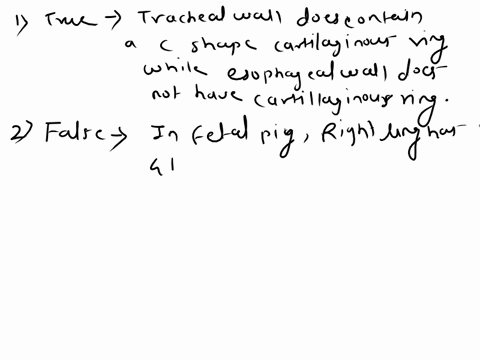 1) True → Tracheal wall does contain
a C shape cartilaginous ring
while esophageal wall does
not have cartillaginous ring.
2) False → In fetal pig, Right lung has
4 l